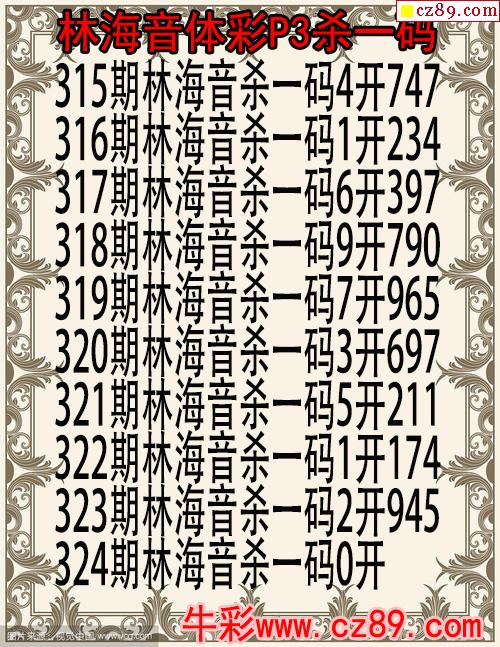 cz89.com
林海音体彩P3杀一码
315期林海音杀一码4开747
316期林海音杀一码1开234
317期林海音杀一码6开397
318期林海音杀一码9开790
319期林海音杀一码7开965
320期林海音杀一码3开697
321期林海音杀一码5开211
322期林海音杀一码1开174
323期林海音杀一码2开945
324期林海音杀一码0开
牛彩www.cz89.com
图片来源：视觉中国 www.vcg.com